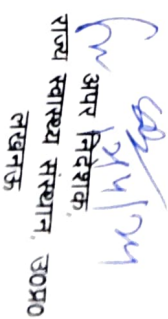 अपर निदेशक
राज्य स्वास्थ्य संस्थान, उ0प्र0
लखनऊ